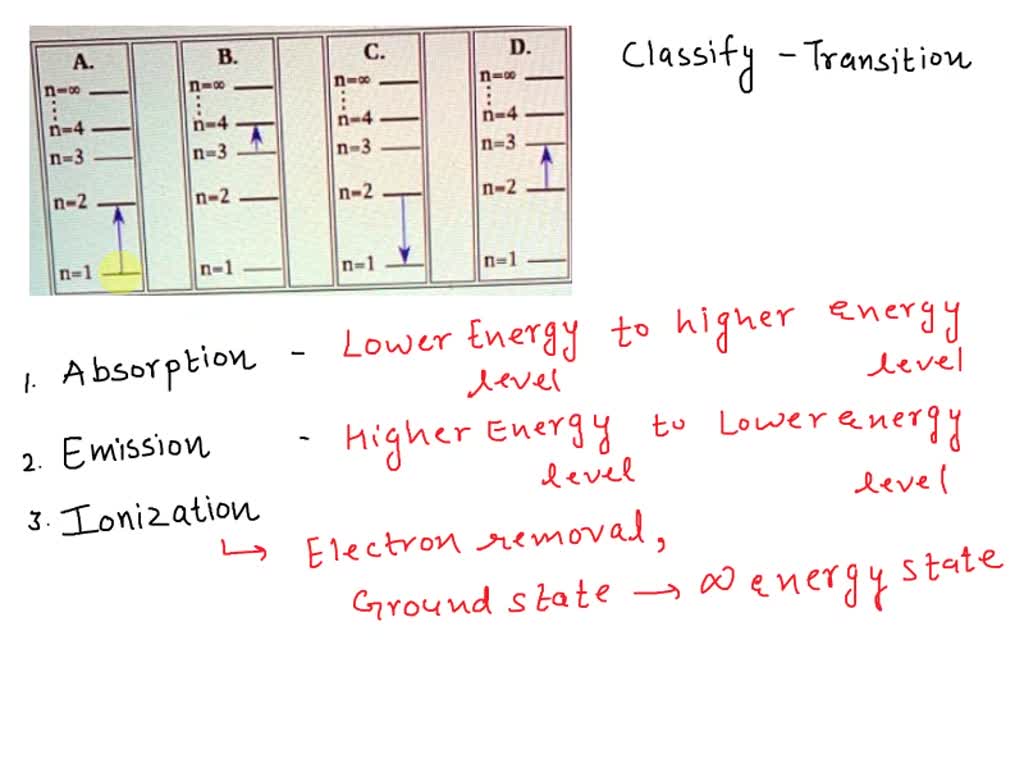 A.
n=∞
n=4
n=3
n=2
n=1
B.
n=∞
n=4
n=3
n=2
n=1
C.
n=∞
n=4
n=3
n=2
n=1
D.
n=∞
n=4
n=3
n=2
n=1
Classify - Transition
1. Absorption - Lower Energy to higher energy
level level
2. Emission - Higher Energy to Lower energy
level level
3. Ionization
↳ Electron removal,
Ground state → ∞ energy state